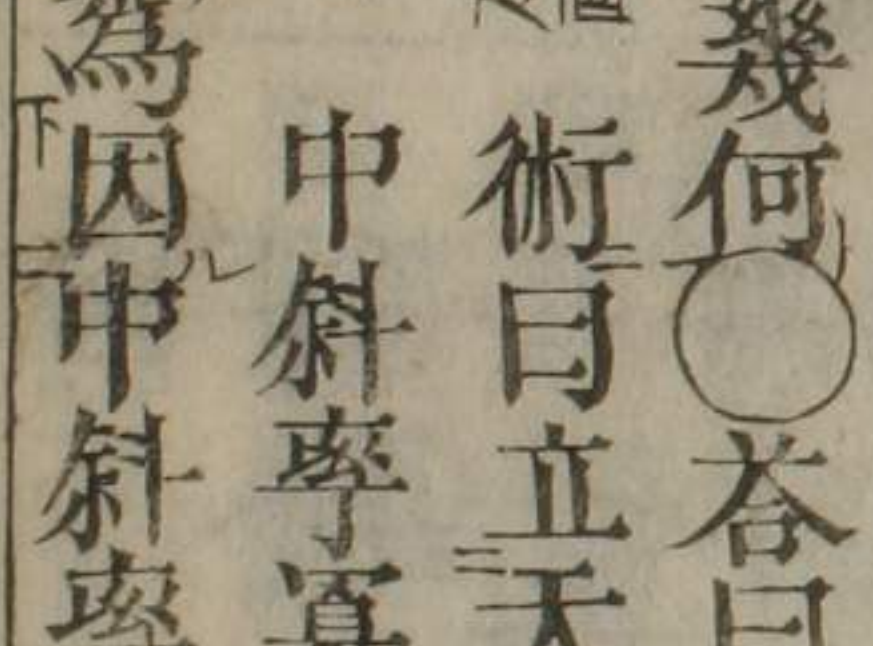 幾何〇荅曰
術曰立天
中斜率寘
為因中斜率